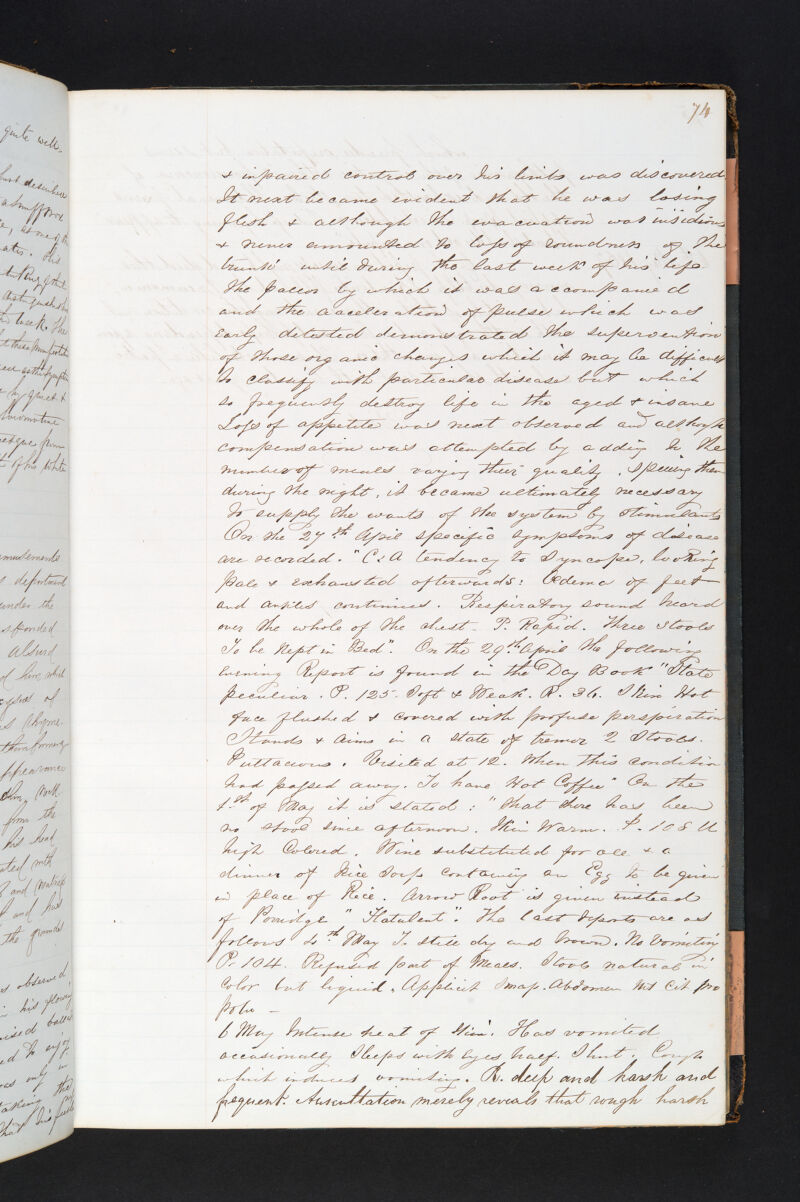 quite well.
74
& impaired control over his limbs was discovered
It next became evident that he was losing
flesh & although the evacuation was insidious
& never amounted to loss of roundness of the
trunk until during the last week of his life
The pallor by which it was accompanied
and the acceleration of pulse which was
early detected demonstrated the supervention
of those organic changes which it may be difficult
to classify with particular disease but which
so frequently destroy life in the aged & insane
Loss of appetite was next observed and although
compensation was attempted by adding to the
number of meals varying their quality, them
during the night, it became ultimately necessary
to supply the wants of the system by stimulants
On the 27th April specific symptoms of disease
are recorded. "C: A tendency to Syncope, looking
pale & exhausted afterwards: Œdema of feet
and ankles continues. Respiratory sound heard
over the whole of the chest. P. Rapid. Three Stools
To be kept in Bed". On the 29th April the following
Evening Report is found in the Day Book "State
peculiar. P. 125. Soft & Weak. R. 36. Skin Hot
face flushed & covered with profuse perspiration
Hands & Arms in a state of tremor 2 Stools.
. Visited at 12. When this condition
had passed away. To have Hot Coffee" On the
1st of May it is stated: "That there has been
no stool since afternoon. Skin Warm. P. 108 U
high Colored. Wine substituted for ale & a
dinner of Rice Soup containing an Egg to be given
in place of Rice. Arrow Root is given instead
of Porridge "Flatulent". The last reports are as
follows 4th May T. still dry and brown. No Vomiting
P. 104. Refused part of Meals. Stools natural in
Color but liquid. Applicit Sinap. Abdomen Mist Cit pro
potu —
6 May Intense heat of Skin. Has vomited
occasionally Sleeps with Eyes half Shut. Cough
which induces vomiting. R. deep and harsh and
frequent. Auscultation merely reveals that rough harsh